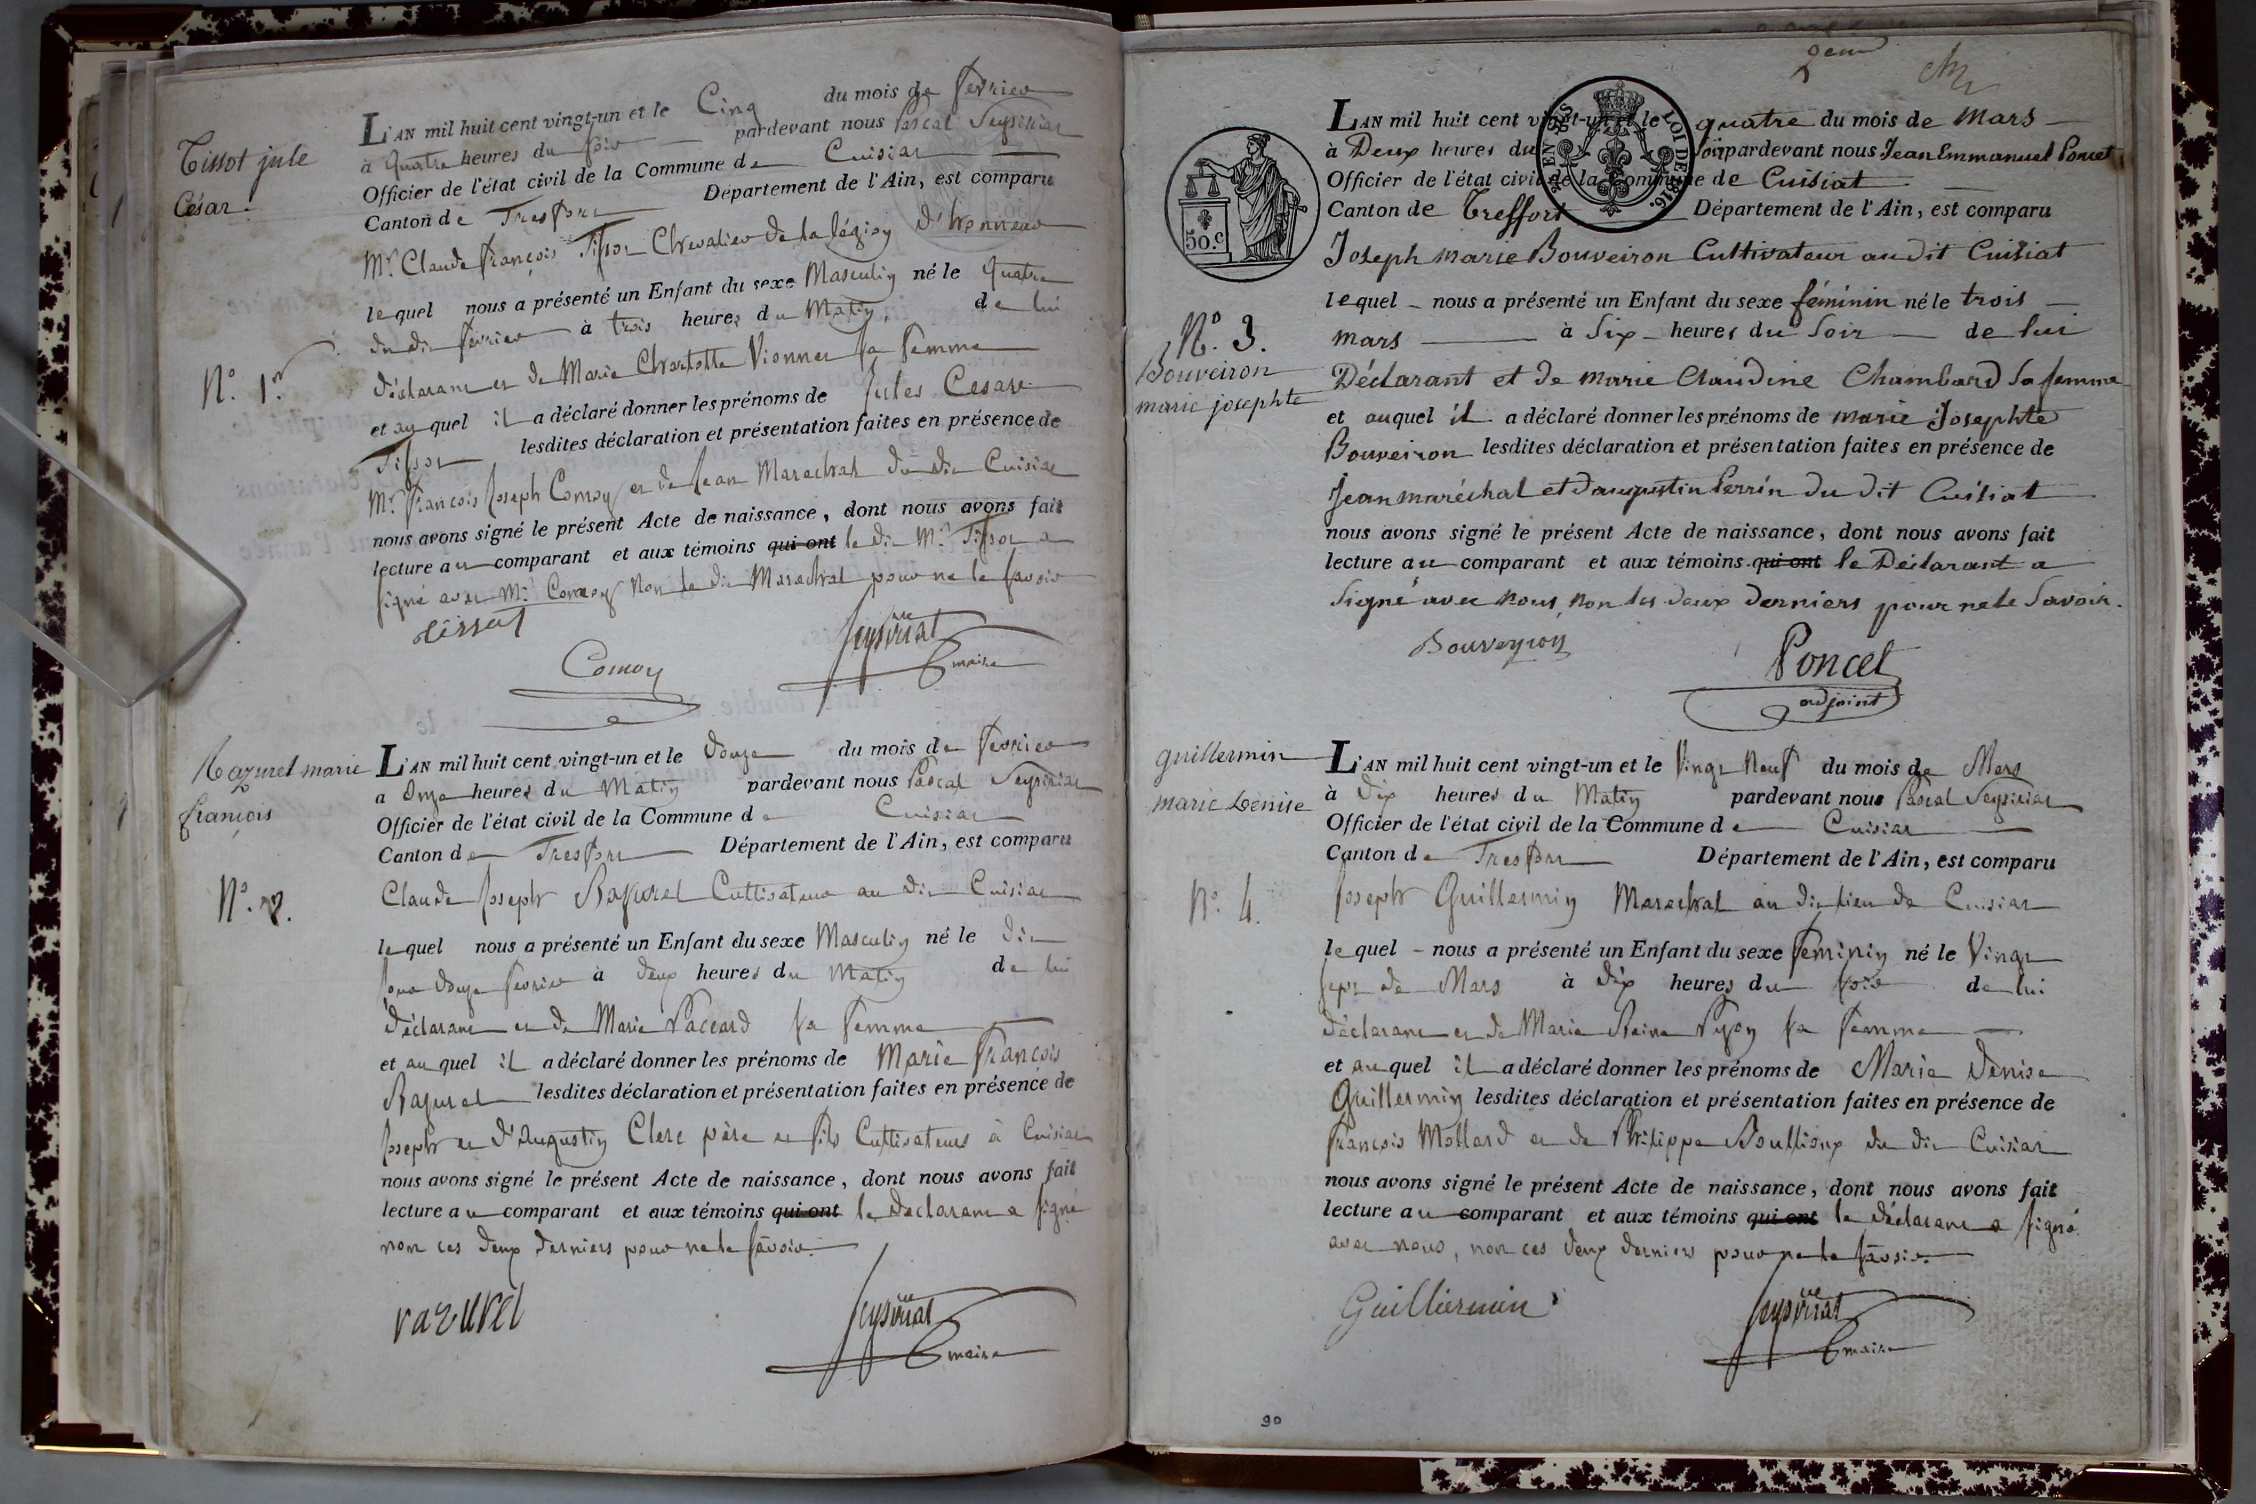 Tissot jule
César.
N.º 1.er
L'AN mil huit cent vingt-un et le Cinq du mois de fevrier
à quatre heures du soir pardevant nous Pascal Seyssiriat
Officier de l'état civil de la Commune de Cuisiat
Canton de Treffort Département de l'Ain, est comparu
Mr. Claude françois Tissot Chevalier de la légion d'honneur
lequel nous a présenté un Enfant du sexe Masculin né le quatre
du dit fevrier à trois heures du Matin, de lui
déclarant et de Marie Charlotte Vionnet sa femme
et auquel il a déclaré donner les prénoms de Jules Cesare
Tissot lesdites déclaration et présentation faites en présence de
Mr. françois Joseph Comoy et de Jean Marechal du dit Cuisiat
nous avons signé le présent Acte de naissance, dont nous avons fait
lecture au comparant et aux témoins qui ont le dit Mr. Tissot a
signé avec Mr. Comoy non le dit Marechal pour ne le savoir
tissot
Comoy
Seyssiriat
maire
Razurel marie
françois
N.º 2.
L'AN mil huit cent vingt-un et le douze du mois de fevrier
a onze heures du Matin pardevant nous Pascal Seyssiriat
Officier de l'état civil de la Commune de Cuisiat
Canton de Treffort Département de l'Ain, est comparu
Claude Joseph Razurel Cultivateur au dit Cuisiat
lequel nous a présenté un Enfant du sexe Masculin né le dit
jour douze fevrier à deux heures du Matin de lui
déclarant et de Marie Paccard sa femme
et auquel il a déclaré donner les prénoms de Marie françois
Razurel lesdites déclaration et présentation faites en présence de
Joseph et d'Augustin Clerc père et fils Cultivateurs à Cuisiat
nous avons signé le présent Acte de naissance, dont nous avons fait
lecture au comparant et aux témoins qui ont le déclarant a signé
non ces deux derniers pour ne le savoir.
razurel
Seyssiriat
maire
2eme
50.c
EN SUS
LOI DE 1816.
N.º 3.
Bouveiron
marie josephte
L'AN mil huit cent vingt-un et le quatre du mois de Mars
à Deux heures du soir pardevant nous Jean Emmanuel Poncet
Officier de l'état civil de la Commune de Cuisiat
Canton de Treffort Département de l'Ain, est comparu
Joseph marie Bouveiron Cultivateur audit Cuisiat
lequel nous a présenté un Enfant du sexe féminin né le trois
mars à Six heures du Soir de lui
Déclarant et de marie Claudine Chambard sa femme
et auquel il a déclaré donner les prénoms de marie Josephte
Bouveiron lesdites déclaration et présentation faites en présence de
Jean maréchal et d'augustin Perrin du dit Cuisiat
nous avons signé le présent Acte de naissance, dont nous avons fait
lecture au comparant et aux témoins qui ont le Déclarant a
Signé avec nous, non les deux derniers pour ne le Savoir.
Bouveyron
Poncet
adjoint
guillermin
marie Denise
N.º 4.
L'AN mil huit cent vingt-un et le Vingt Neuf du mois de Mars
à Dix heures du Matin pardevant nous Pascal Seyssiriat
Officier de l'état civil de la Commune de Cuisiat
Canton de Treffort Département de l'Ain, est comparu
Joseph Guillermin Marechal au dit lieu de Cuisiat
lequel nous a présenté un Enfant du sexe feminin né le Vingt
sept de Mars à dix heures du soir de lui
déclarant et de Marie Reine Pyon sa femme
et auquel il a déclaré donner les prénoms de Marie Denise
Guillermin lesdites déclaration et présentation faites en présence de
François Mollard et de Philippe Boullioux du dit Cuisiat
nous avons signé le présent Acte de naissance, dont nous avons fait
lecture au comparant et aux témoins qui ont le déclarant a signé
avec nous, non ces deux derniers pour ne le savoir.
Guillermin
Seyssiriat
maire
90